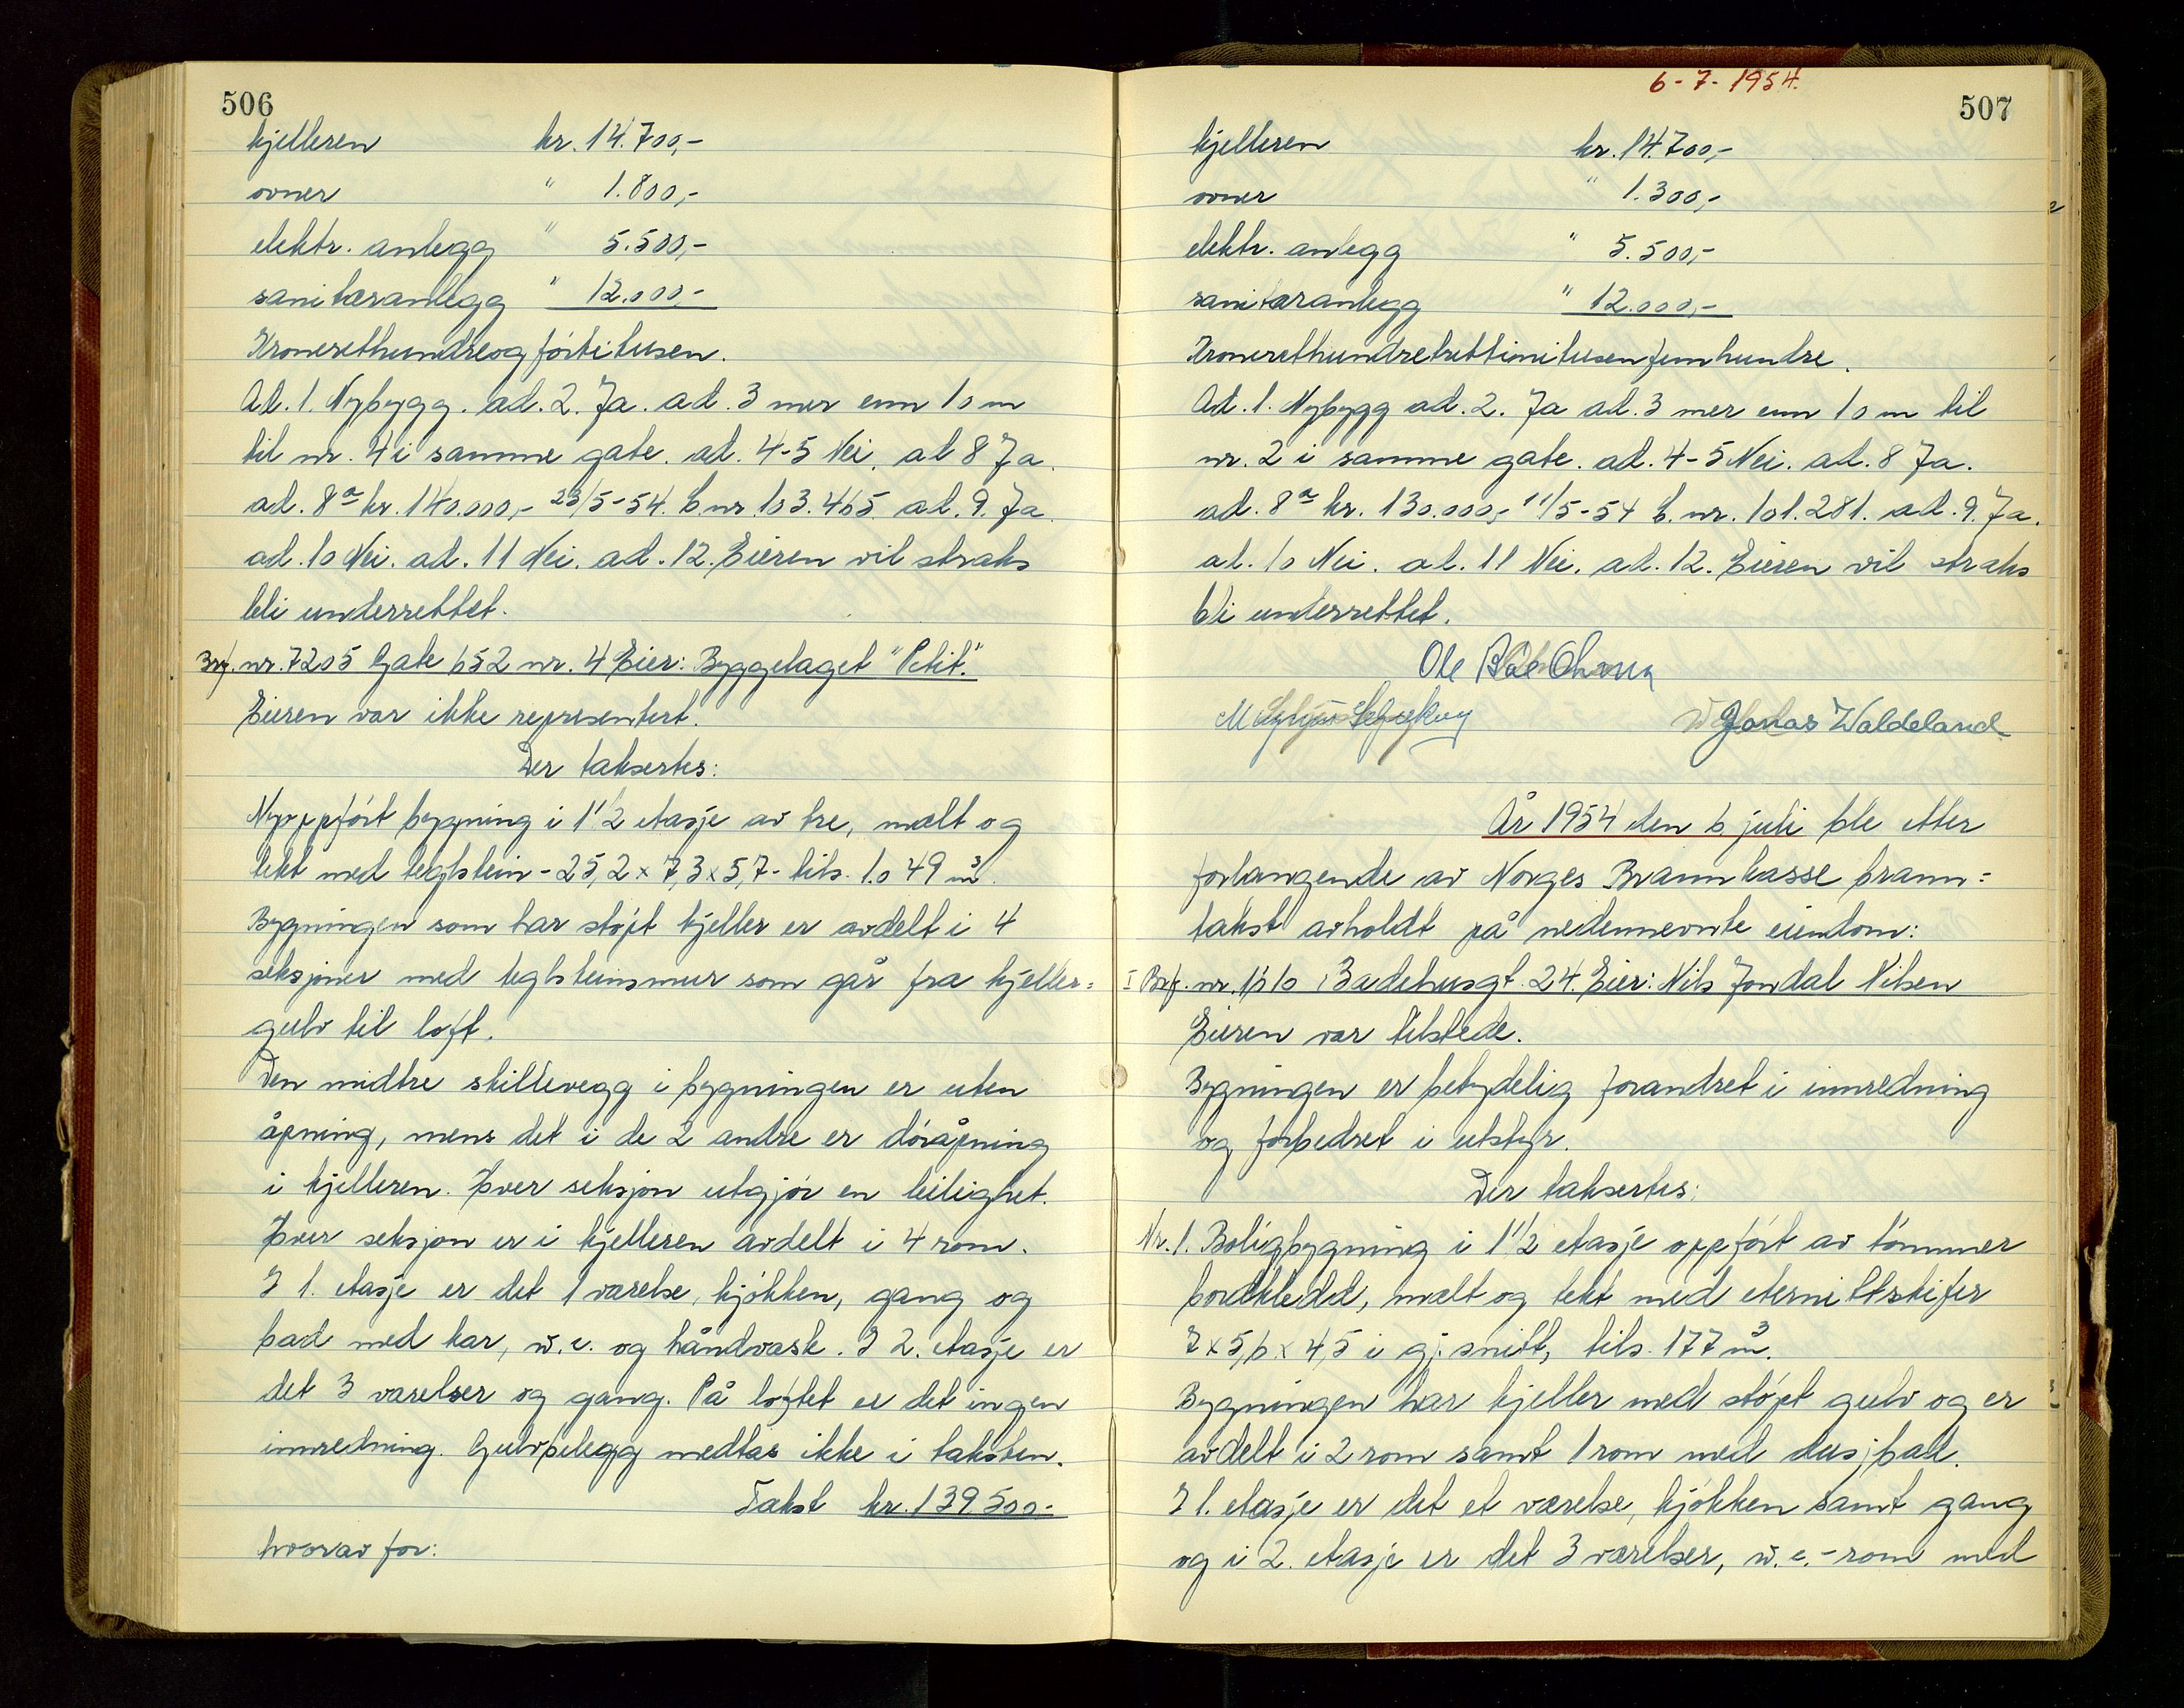 506
kjelleren kr. 14.700,-
ovner " 1.800,-
elektr. anlegg " 5.500,-
sanitæranlegg " 12.000,-
Kronerethundreogførtitusen.
Ad. 1. Nybygg. ad. 2. Ja. ad. 3 mer enn 10 m
til nr. 4 i samme gate. ad. 4-5 Nei. ad 8 Ja.
ad. 8ª kr. 140.000,- 23/5-54. b. nr. 103.465. ad. 9. Ja
ad. 10 Nei. ad. 11 Nei. ad. 12. Eieren vil straks
bli underrettet.
Brf. nr. 7205 Gate 652 nr. 4 Eier: Byggelaget "Petit."
Eieren var ikke representert.
Der taksertes:
Nyoppført bygning i 1 1/2 etasje av tre, malt og
tekt med teglstein - 25,2 x 7,3 x 5,7 - tils. 1.049 m³.
Bygningen som har støpt kjeller er avdelt i 4
seksjoner med teglsteinsmur som går fra kjeller=
gulv til loft.
Den midtre skillevegg i bygningen er uten
åpning, mens det i de 2 andre er døråpning
i kjelleren. Hver seksjon utgjør en leilighet.
Hver seksjon er i kjelleren avdelt i 4 rom.
I 1. etasje er det 1 værelse, kjøkken, gang og
bad med kar, w.c. og håndvask. I 2. etasje er
det 3 værelser og gang. På loftet er det ingen
innredning. Gulvbelegg medtas ikke i taksten.
Takst kr. 139.500-
hvorav for:
6-7-1954.
507
kjelleren kr. 14.700,-
ovner " 1.300,-
elektr. anlegg " 5.500,-
sanitæranlegg " 12.000,-
Kronerethundretrettinitusenfemhundre.
Ad. 1. Nybygg ad. 2. Ja ad. 3 mer enn 10 m til
nr. 2 i samme gate. ad. 4-5 Nei. ad. 8 Ja.
ad. 8ª kr. 130.000,- 11/5-54 b. nr. 101.281. ad. 9. Ja.
ad. 10 Nei. ad. 11 Nei. ad. 12. Eieren vil straks
bli underrettet.
Ole
Jonas Waldeland
År 1954 den 6. juli ble etter
forlangende av Norges Brannkasse brann=
takst avholdt på nedennevnte eiendom:
I Brf. nr. 1610 Badehusgt. 24. Eier: Nils Jondal Nilsen
Eieren var tilstede.
Bygningen er betydelig forandret i innredning
og forbedret i utstyr.
Der taksertes:
Nr. 1. Boligbygning i 1 1/2 etasje oppført av tømmer
bordkledd, malt og tekt med eternittskifer
7 x 5,6 x 4,5 i gj. snitt, tils. 177 m³.
Bygningen har kjeller med støpt gulv og er
avdelt i 2 rom samt 1 rom med dusjbad.
I 1. etasje er det et værelse, kjøkken samt gang
og i 2. etasje er det 3 værelser, w.c.-rom med